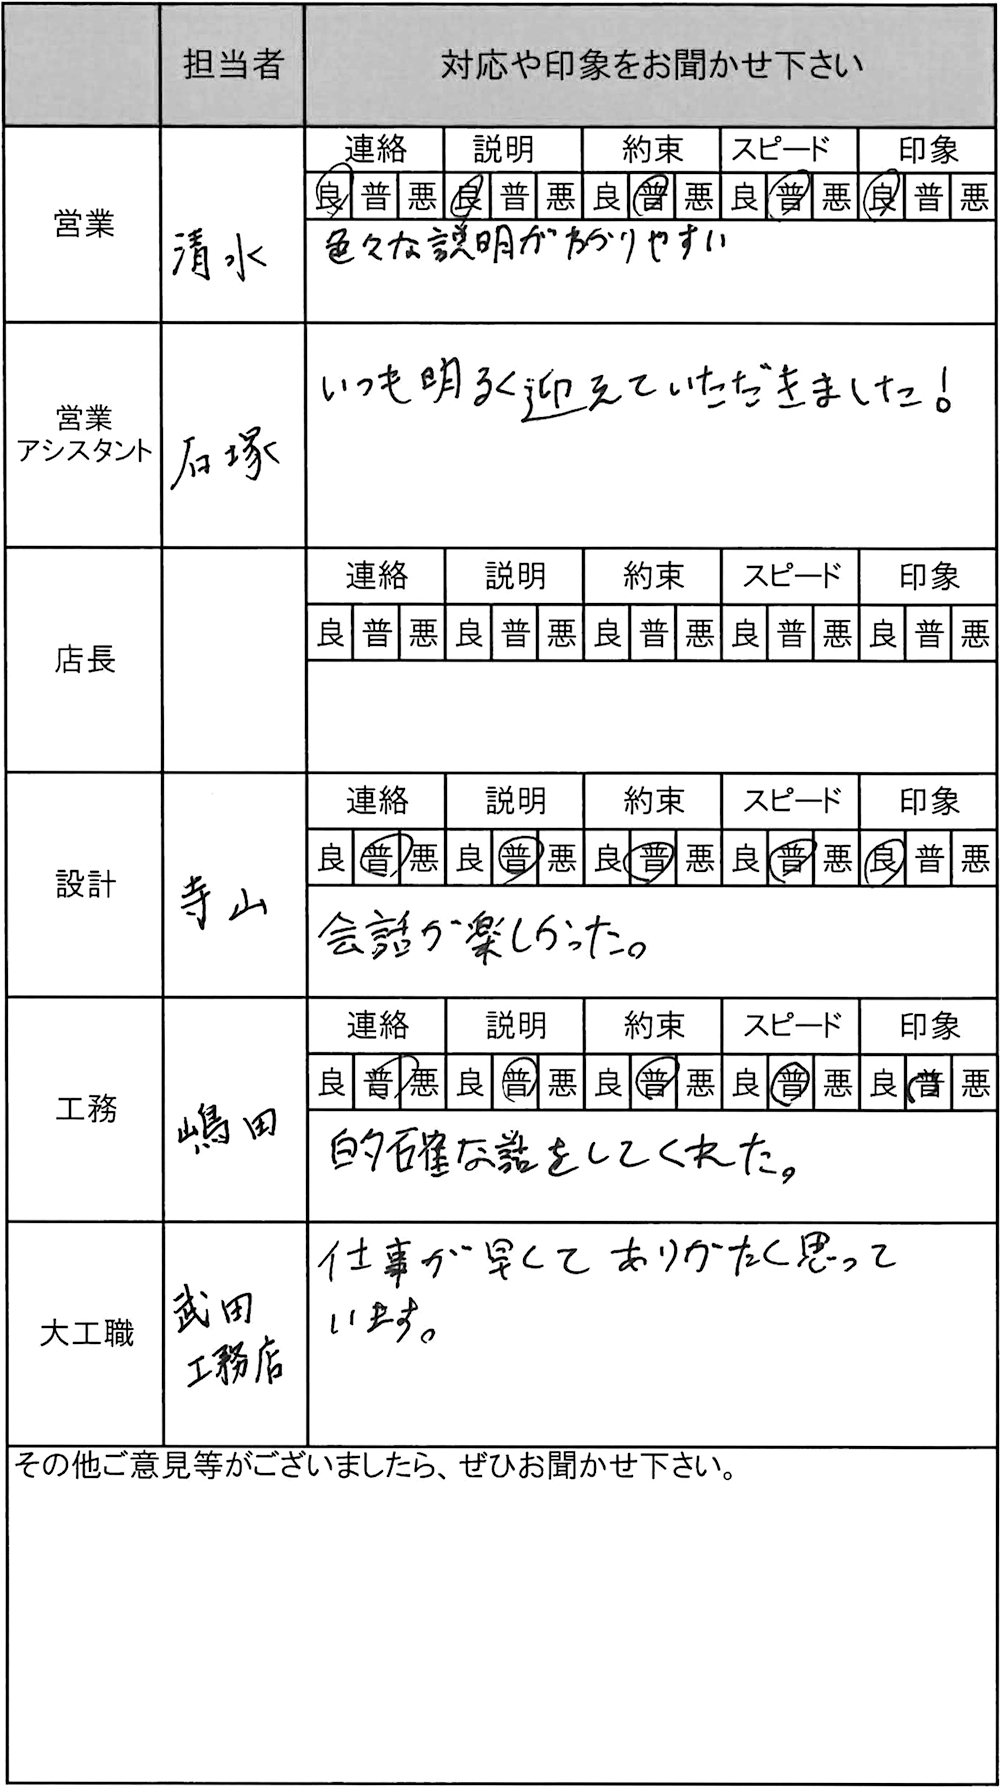 担当者 対応や印象をお聞かせ下さい
営業 清水
連絡 説明 約束 スピード 印象
良 普 悪 良 普 悪 良 普 悪 良 普 悪 良 普 悪
色々な説明がわかりやすい
営業
アシスタント
石塚
いつも明るく迎えていただきました!
店長
連絡 説明 約束 スピード 印象
良 普 悪 良 普 悪 良 普 悪 良 普 悪 良 普 悪
設計 寺山
連絡 説明 約束 スピード 印象
良 普 悪 良 普 悪 良 普 悪 良 普 悪 良 普 悪
会話が楽しかった。
工務 嶋田
連絡 説明 約束 スピード 印象
良 普 悪 良 普 悪 良 普 悪 良 普 悪 良 普 悪
的確な話をしてくれた。
大工職
武田
工務店
仕事が早くてありがたく思って
います。
その他ご意見等がございましたら、ぜひお聞かせ下さい。